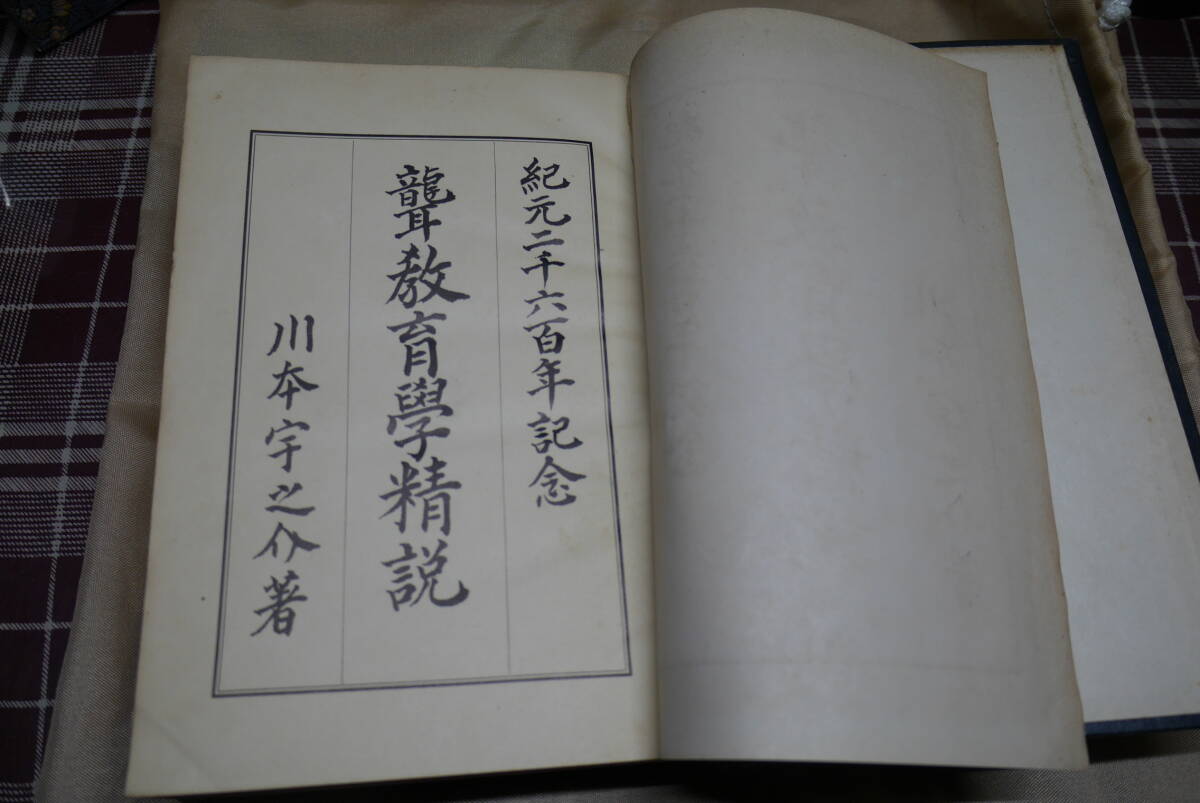 紀元二千六百年記念
聾教育學精説
川本宇之介著